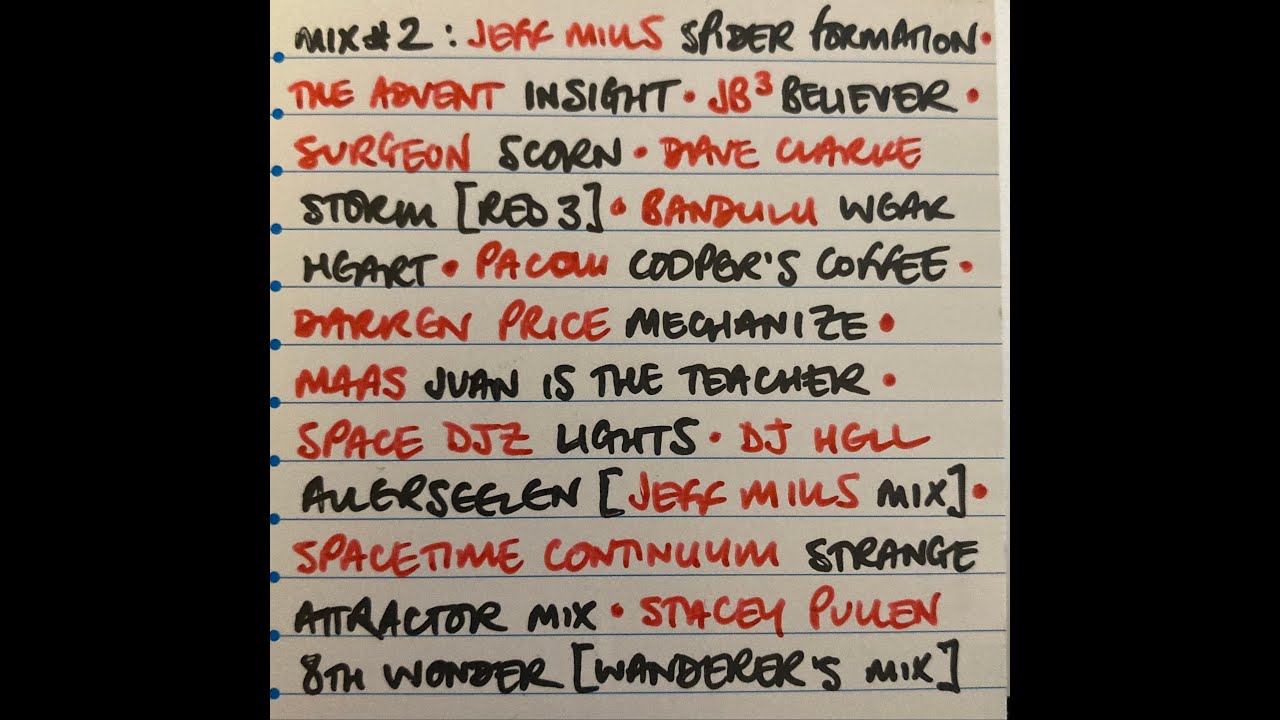 MIX#2: JEFF MILLS SPIDER FORMATION•
THE ADVENT INSIGHT • JB³ BELIEVER •
SURGEON SCORN • DAVE CLARKE
STORM [RED 3] • BANDULU WEAR
HEART • PACOU COOPER'S COFFEE •
DARREN PRICE MECHANIZE •
MAAS JUAN IS THE TEACHER •
SPACE DJZ LIGHTS • DJ HELL
ALLERSEELEN [JEFF MILLS MIX] •
SPACETIME CONTINUUM STRANGE
ATTRACTOR MIX • STACEY PULLEN
8TH WONDER [WANDERER'S MIX]